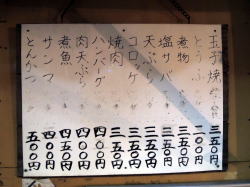 玉子焼 三五〇円
とうふ 二〇〇円
煮物 三五〇円
塩サバ 三五〇円
天ぷら 三五〇円
コロッケ 三五〇円
焼肉 三五〇円
ハンバーグ 四〇〇円
肉天ぷら 四五〇円
煮魚 四五〇円
サンマ
とんかつ 五〇〇円